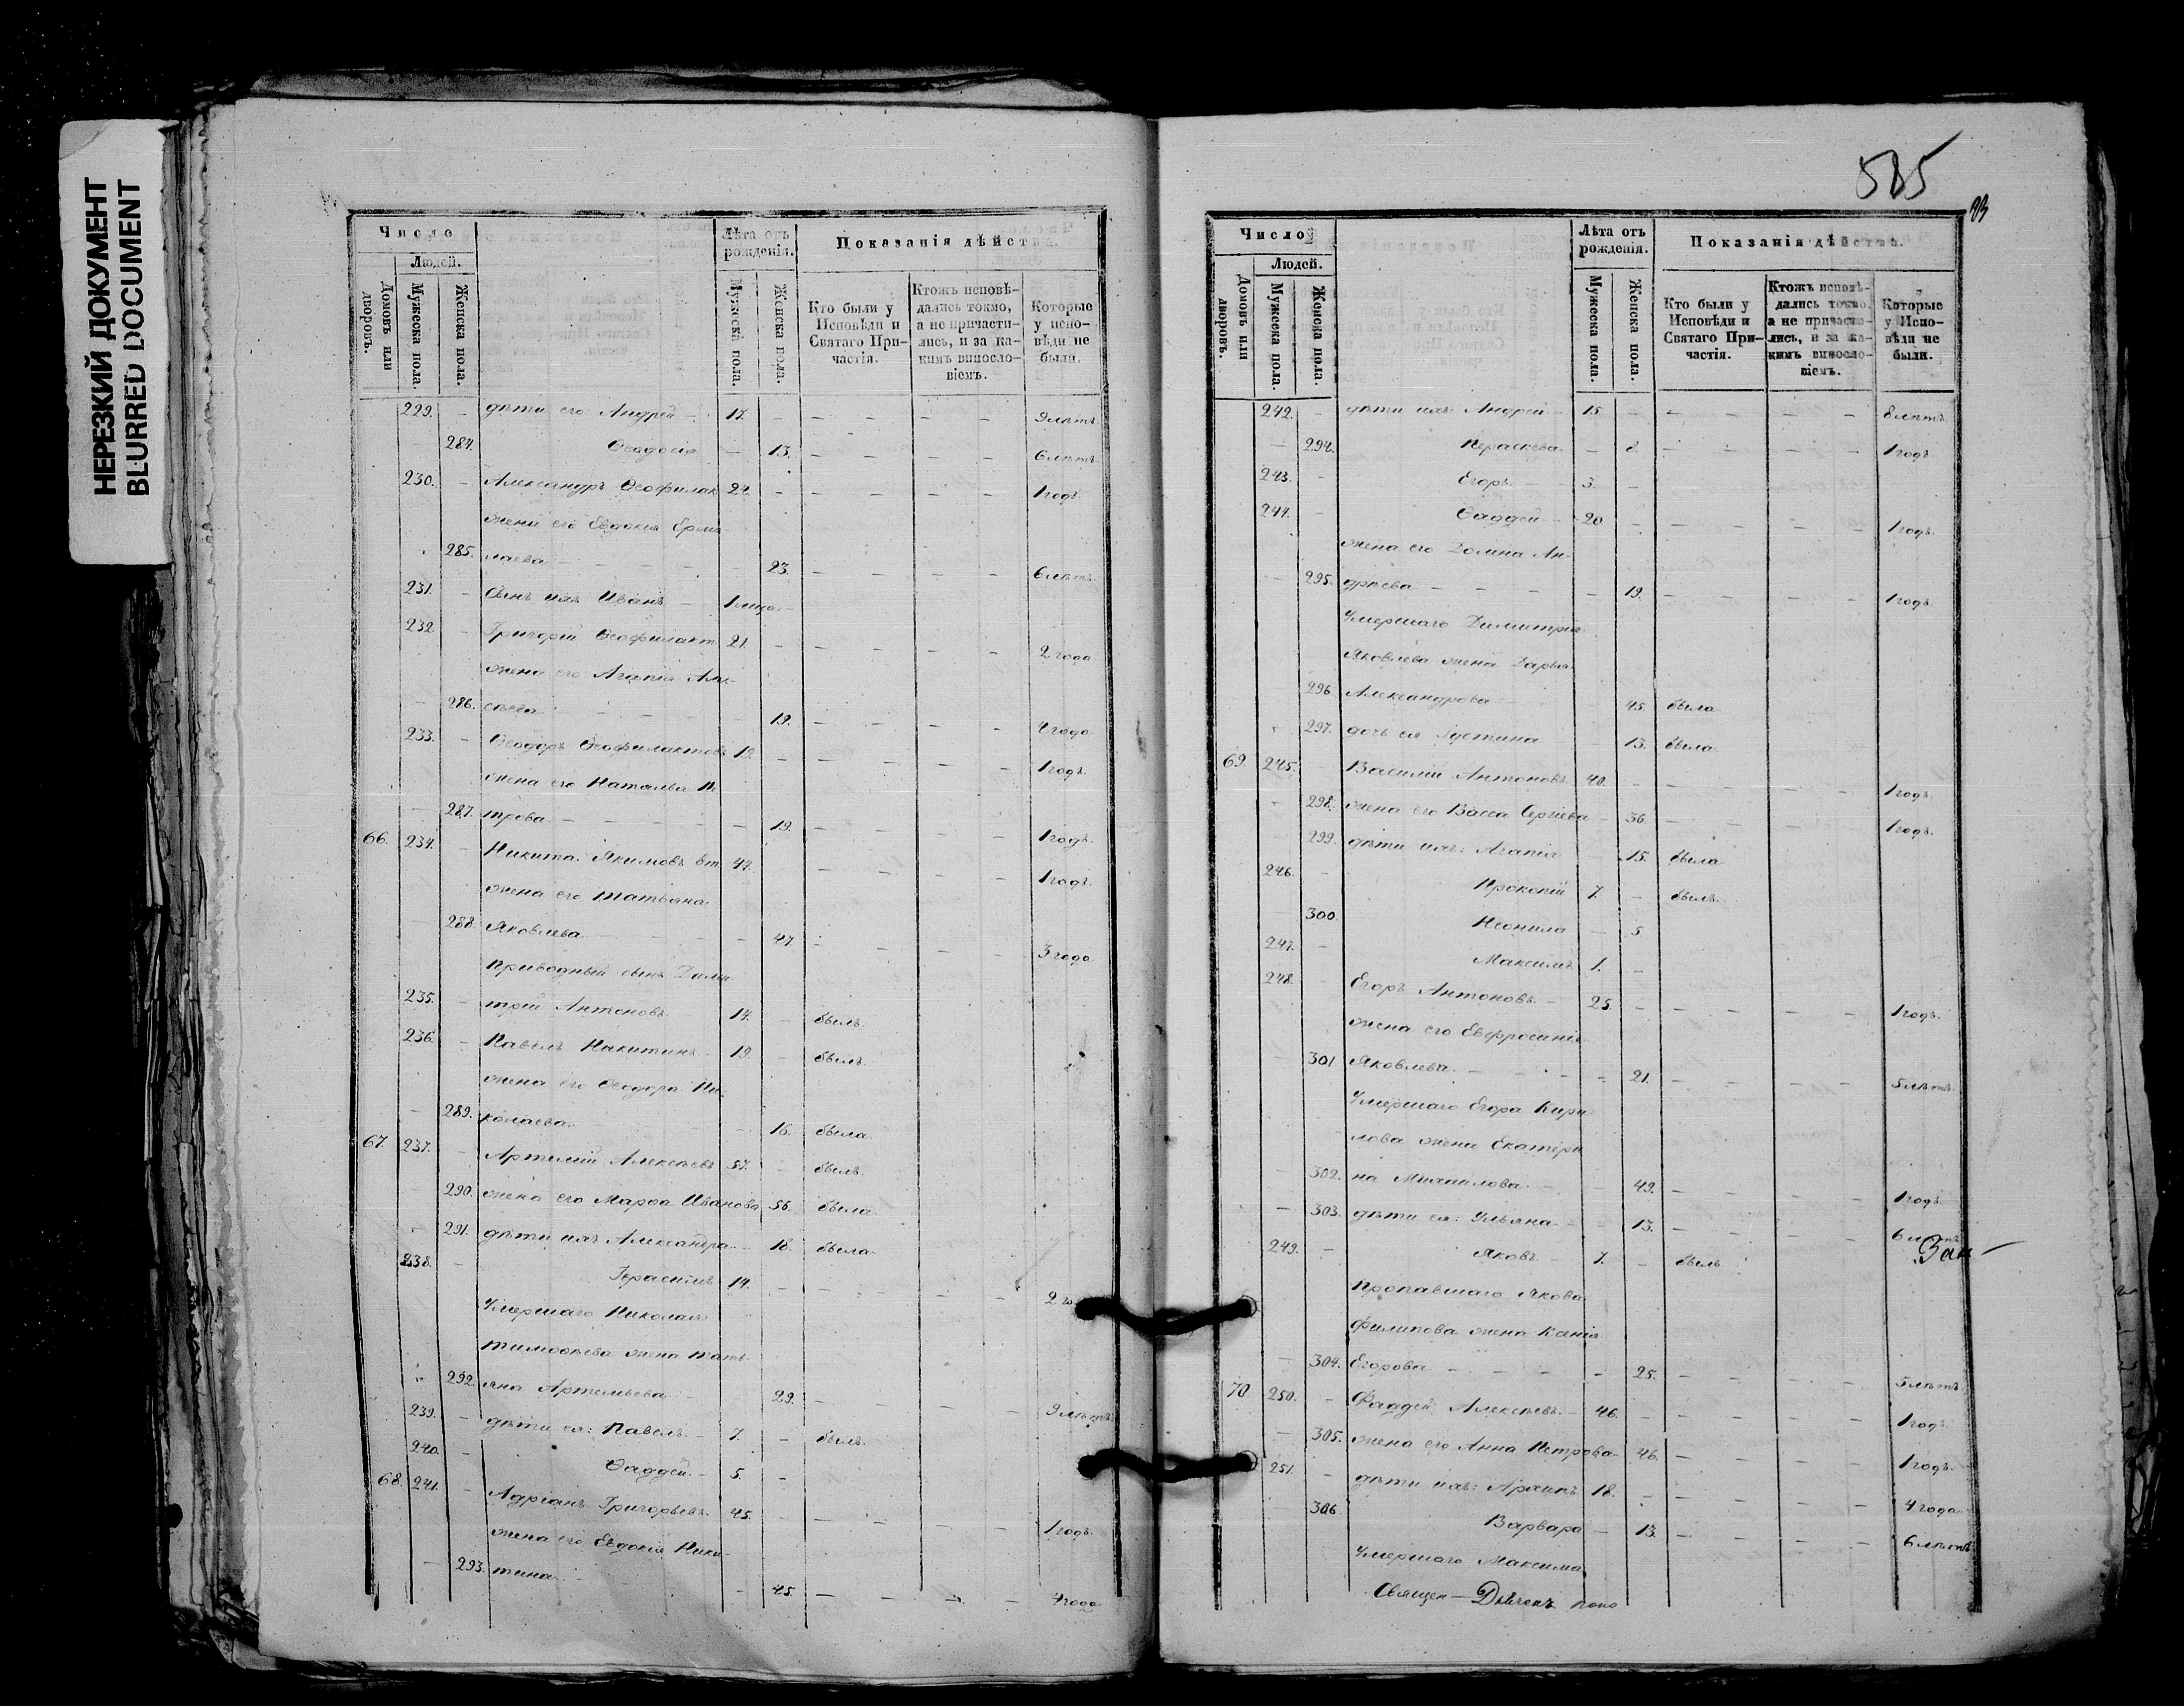 НЕРЕЗКИЙ ДОКУМЕНТ
BLURRED DOCUMENT
Число
Людей.
Домовъ или дворовъ.
Мужеска пола.
Женска пола.
Лѣта отъ рожденія.
Мужеска пола.
Женска пола.
Показанія дѣйства.
Кто были у Исповѣди и Святаго Причастія.
Ктожъ исповѣдались токмо, а не причастились, и за какимъ винословіемъ.
Которые у исповѣди не были.
229. – дѣти его Андрей – 17. – – – – – 9 лѣтъ
284. Ѳеодосія – 13. – – – – 6 лѣтъ
230. – Александръ Ѳеофилак 24. – – – – – 1 годъ.
жена его Евдокія Ермо
285. лаева – 23. – – – – 6 лѣтъ
231. – Сынъ ихъ Иванъ –
232. – Григорій Ѳеофилакт. 21. – – – – – 2 года
жена его Агапія Але-
286. сѣева 19. – – – – 4 года
233. – Ѳеодоръ Ѳеофилактовъ 19. – – – – – 1 годъ.
жена его Наталья Пе
287. трова – 19. – – – – 1 годъ.
66. 234. – Никита Якимовъ вт. 47. – – – – 1 годъ.
жена его Татьяна
288. Яковлева – 47. – – – – 3 года
Приводный сынъ Дими
235. – трій Антоновъ 14. – былъ.
236. – Павелъ Никитинъ 19. – былъ.
жена его Ѳеодора Ни-
289. колаева 16. была
67. 237. – Артемій Алексѣевъ 57. – былъ.
290. жена его Марѳа Иванова 56. была
291. дѣти ихъ Александра – 18. была
238. – Герасимъ 14. – – – – – 2 го
Умершаго Николая
Тимоѳеева жена Тать-
292. яна Артемьева 29. – – – – 9 лѣтъ
239. – дѣти ея: Павелъ – 7. – былъ.
240. – Ѳаддей. – 5. –
68. 241. – Адріанъ Григорьевъ. 45. – – – – – 1 годъ.
жена его Евдокія Ники-
293. тина 45. – – – – 4 года
585
Число
Людей.
Домовъ или дворовъ.
Мужеска пола.
Женска пола.
Лѣта отъ рожденія.
Мужеска пола.
Женска пола.
Показанія дѣйства.
Кто были у Исповѣди и Святаго Причастія.
Ктожъ исповѣдались токмо, а не причастились, и за какимъ винословіемъ.
Которые у Исповѣди не были.
242. – дѣти ихъ Андрей 15. – – – – – 8 лѣтъ
294. Пераскева – 8. – – – – 1 годъ
243. – Егоръ – 3. –
244. – Ѳаддей – 20 – – – – – 1 годъ.
жена его Домна Ан-
295. дрѣева – 19. – – – – 1 годъ
Умершаго Димитрія
Яковлева жена Дарья
296 Александрова 45. была
297. дочь ея Іустина 13. была
69. 245. – Василій Антоновъ 40. – – – – – 1 годъ.
298. жена его Васса Сергіева – 36. – – – – 1 годъ.
299. дѣти ихъ: Агапія 15. была
246. – Прокопій 7. – былъ.
300. Неонила – 5
247. – Максимъ 1. –
248. – Егоръ Антоновъ – 25. – – – – – 1 годъ.
жена его Евфросинія
301 Яковлева – 21. – – – – 5 лѣтъ.
Умершаго Егора Кири
лова жена Екатери
302. на Михайлова – 49. – – – – 1 годъ.
303. дѣти ея: Ульяна – 13. – – – – 6 лѣтъ
249. – Яковъ – 7. – былъ
Пропавшаго Якова
Филипова жена Ксенія
304. Егорова – 25. – – – – 5 лѣтъ
70. 250. – Фаддей Алексѣевъ – 46. – – – – – 1 годъ.
305. жена его Анна Петрова – 46. – – – – 1 годъ.
251. – дѣти ихъ: Архипъ 18. – – – – – 4 года
306. Варвара – 13. – – – – 6 лѣтъ
Умершаго Максима
Священ –